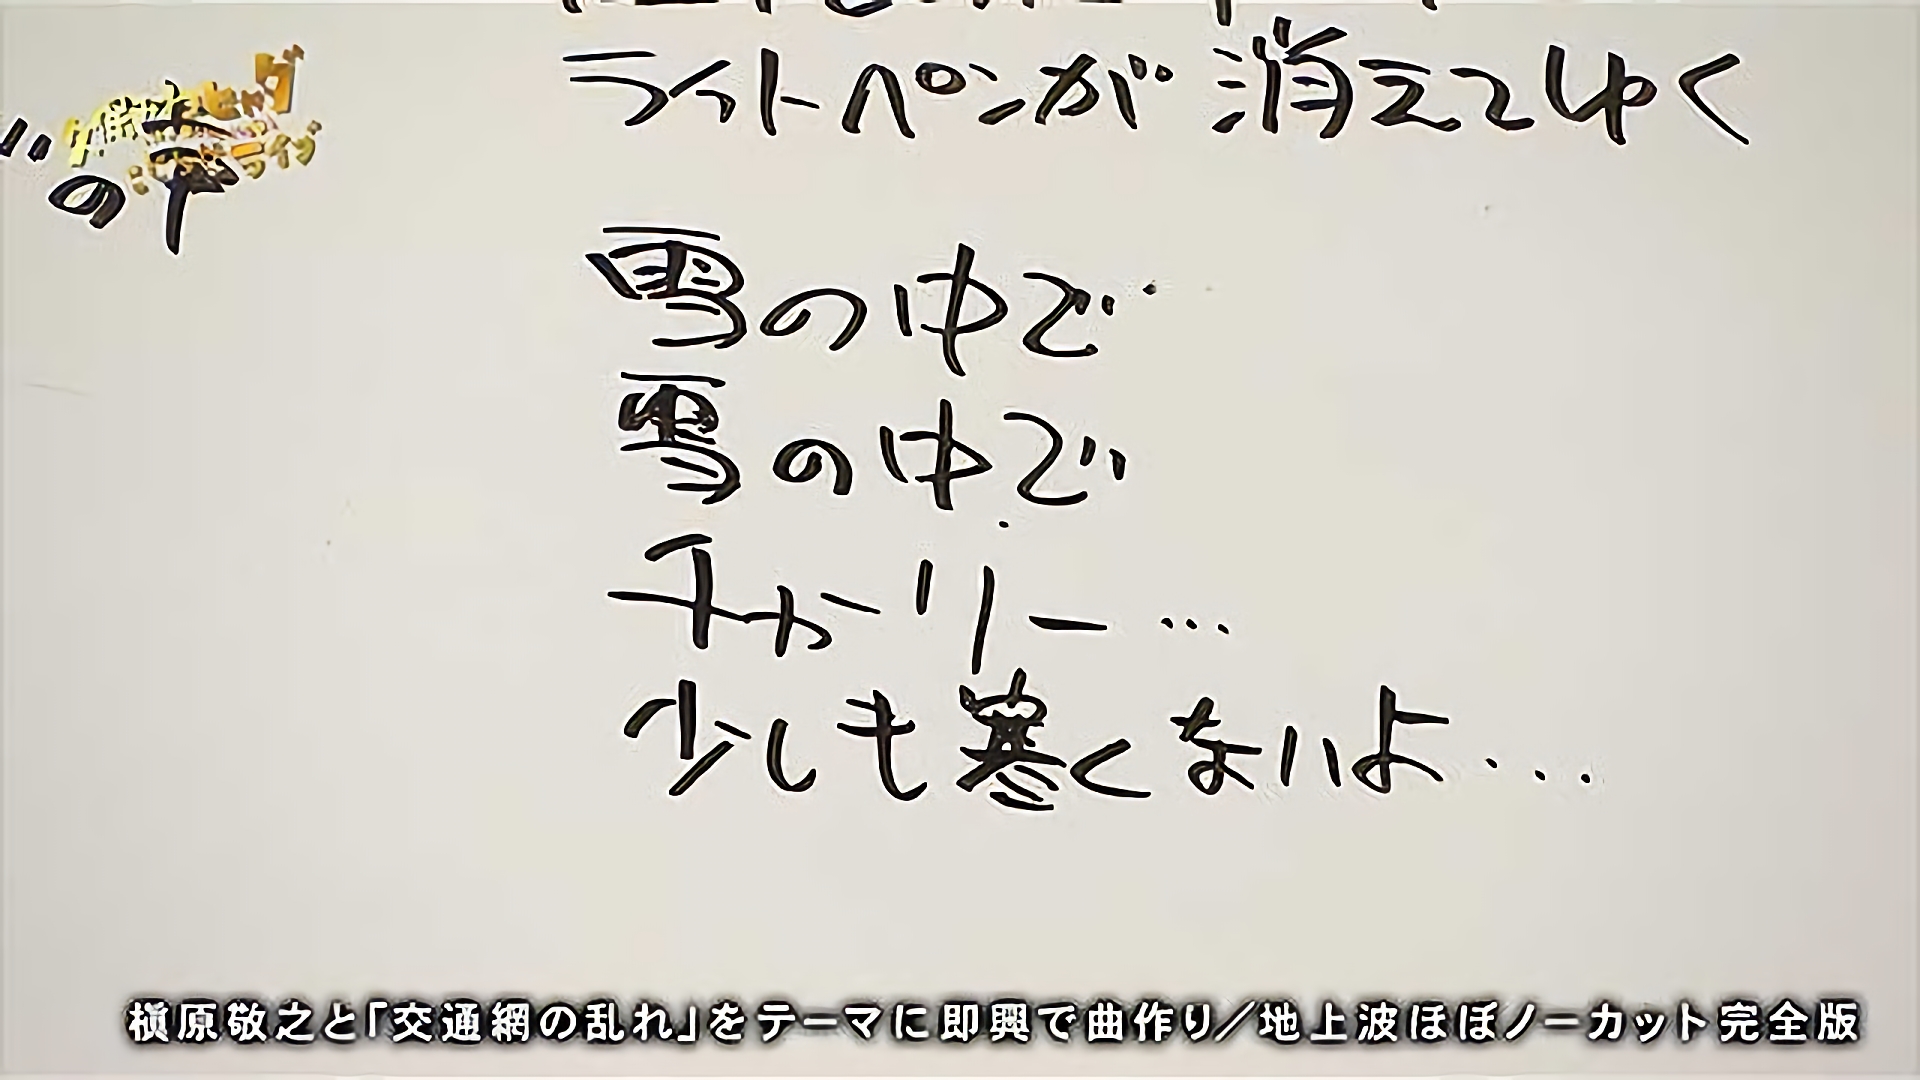 ライトペンが 消えてゆく
の中
雪の中で
雪の中で
チかリー…
少しも寒くないよ…
槇原敬之と「交通網の乱れ」をテーマに即興で曲作り/地上波ほぼノーカット完全版